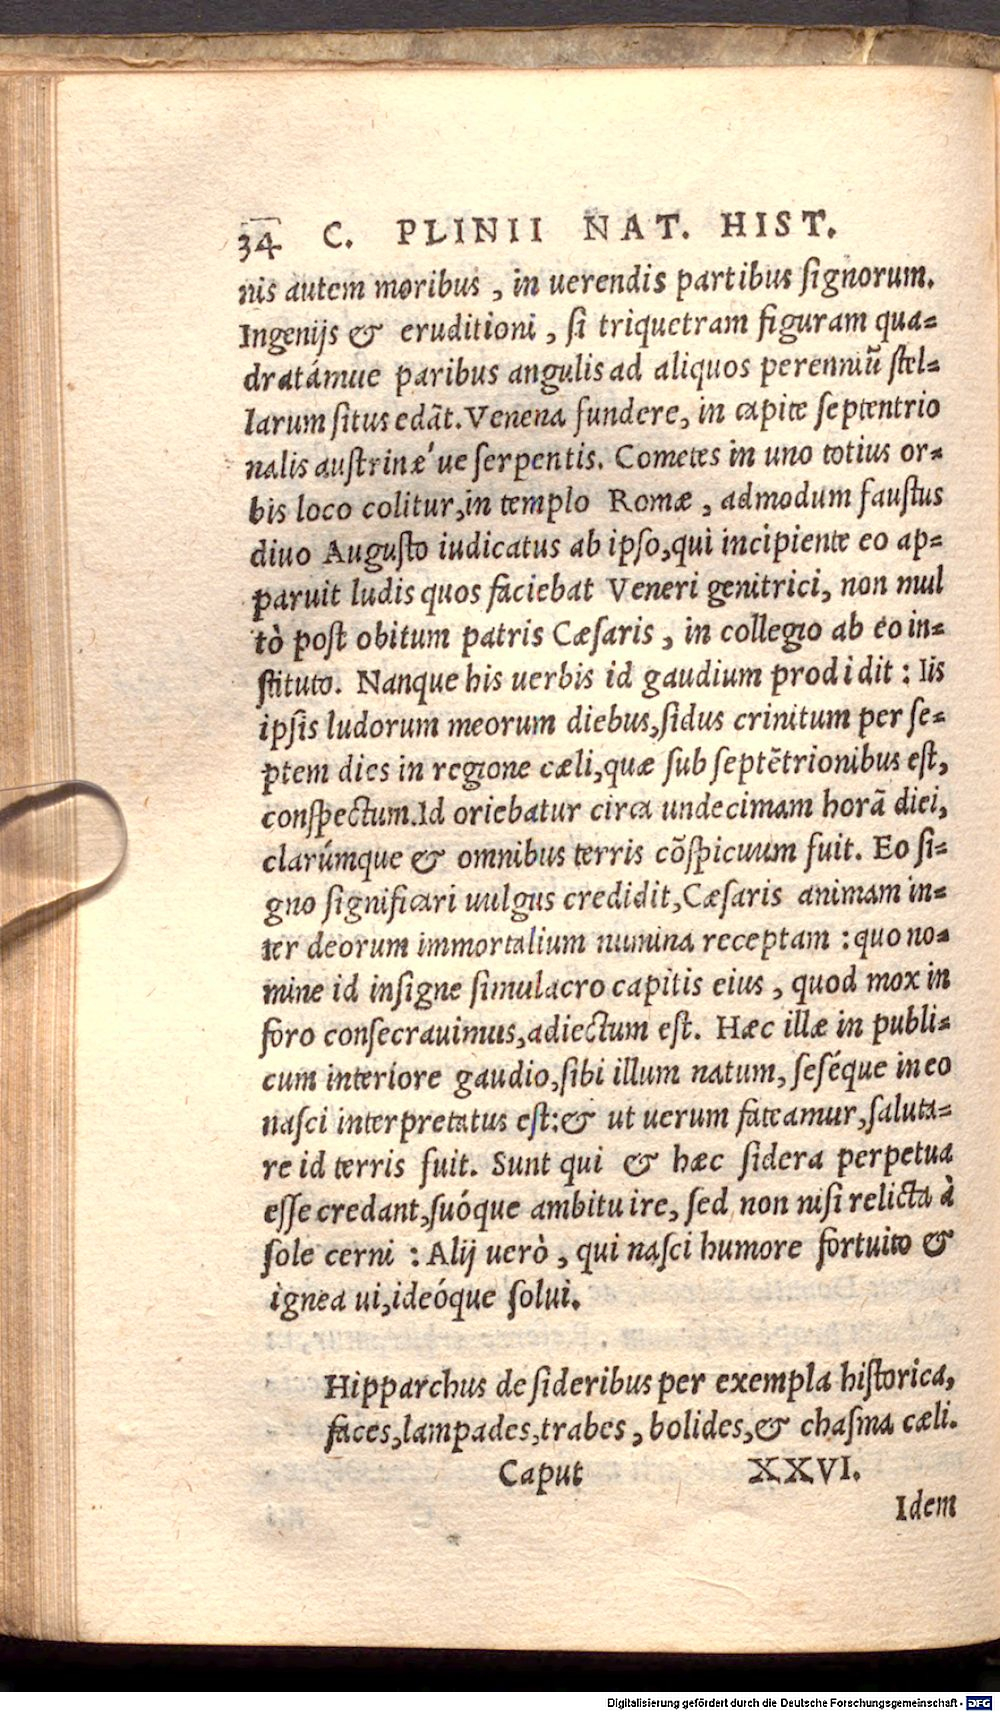 34 C. PLINII NAT. HIST.
nis autem moribus, in uerendis partibus ſignorum.
Ingenijs & eruditioni, ſi triquetram figuram qua=
dratámue paribus angulis ad aliquos perenniũ ſtel=
larum ſitus edãt. Venena fundere, in capite ſeptentrio
nalis auſtrinæ´ue ſerpentis. Cometes in uno totius or=
bis loco colitur, in templo Romæ, admodum fauſtus
diuo Auguſto iudicatus ab ipſo, qui incipiente eo ap=
paruit ludis quos faciebat Veneri genitrici, non mul
tò poſt obitum patris Cæſaris, in collegio ab eo in=
ſtituto. Nanque his uerbis id gaudium prodidit: Iis
ipſis ludorum meorum diebus, ſidus crinitum per ſe=
ptem dies in regione cæli, quæ ſub ſeptẽtrionibus eſt,
conſpectum. Id oriebatur circa undecimam horã diei,
clarúmque & omnibus terris cõſpicuum fuit. Eo ſi=
gno ſignificari uulgus credidit, Cæſaris animam in=
ter deorum immortalium numina receptam: quo no=
mine id inſigne ſimulacro capitis eius, quod mox in
foro conſecrauimus, adiectum eſt. Hæc illæ in publi=
cum interiore gaudio, ſibi illum natum, ſeſéque in eo
naſci interpretatus eſt: & ut uerum fateamur, ſaluta=
re id terris fuit. Sunt qui & hæc ſidera perpetua
eſſe credant, ſuóque ambitu ire, ſed non niſi relicta à
ſole cerni: Alij uerò, qui naſci humore fortuito &
ignea ui, ideóque ſolui.
Hipparchus de ſideribus per exempla hiſtorica,
faces, lampades, trabes, bolides, & chaſma cæli.
Caput XXVI.
Idem
Digitalisierung gefördert durch die Deutsche Forschungsgemeinschaft - DFG